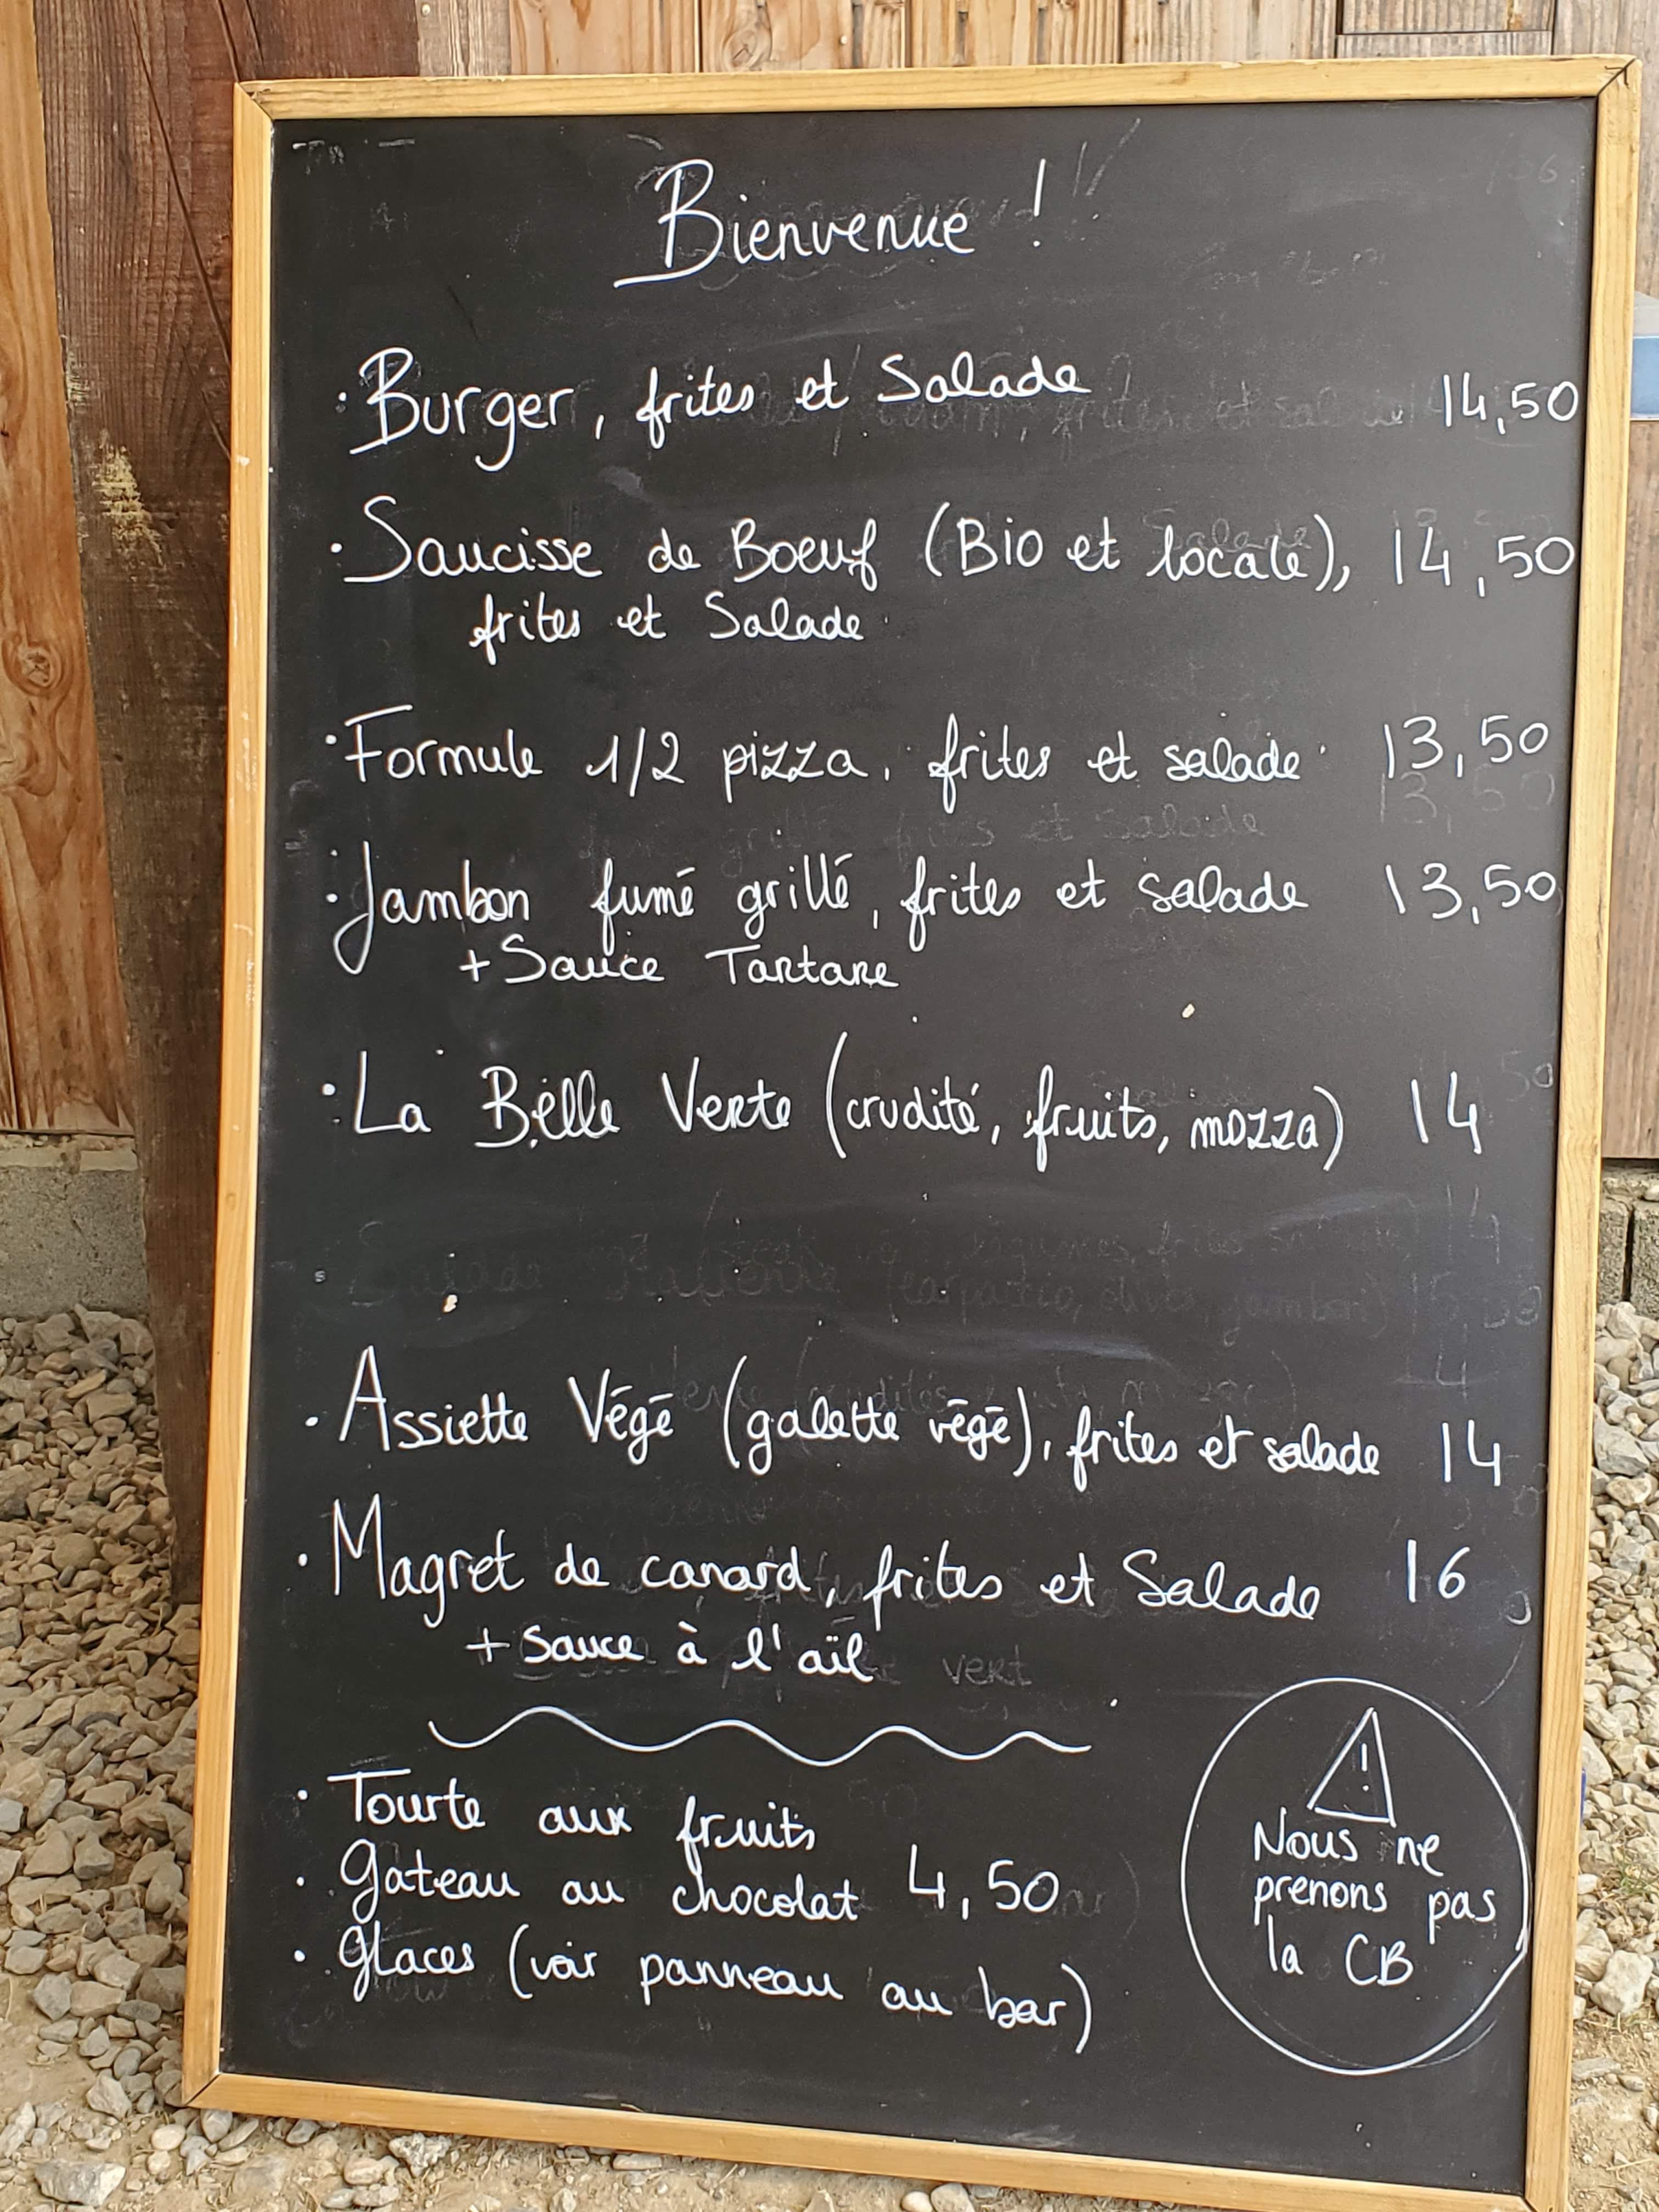 Bienvenue !
· Burger, frites et Salade 14,50
· Saucisse de Boeuf (Bio et locale), 14,50
frites et Salade
· Formule 1/2 pizza, frites et salade 13,50
· Jambon fumé grillé, frites et salade 13,50
+ Sauce Tartare
· La Belle Verte (crudité, fruits, mozza) 14
· Assiette Végé (galette végé), frites et salade 14
· Magret de canard, frites et Salade 16
+ Sauce à l'aïl
· Tourte aux fruits
· Gateau au chocolat 4,50
· Glaces (voir panneau au bar)
Nous ne
prenons pas
la CB